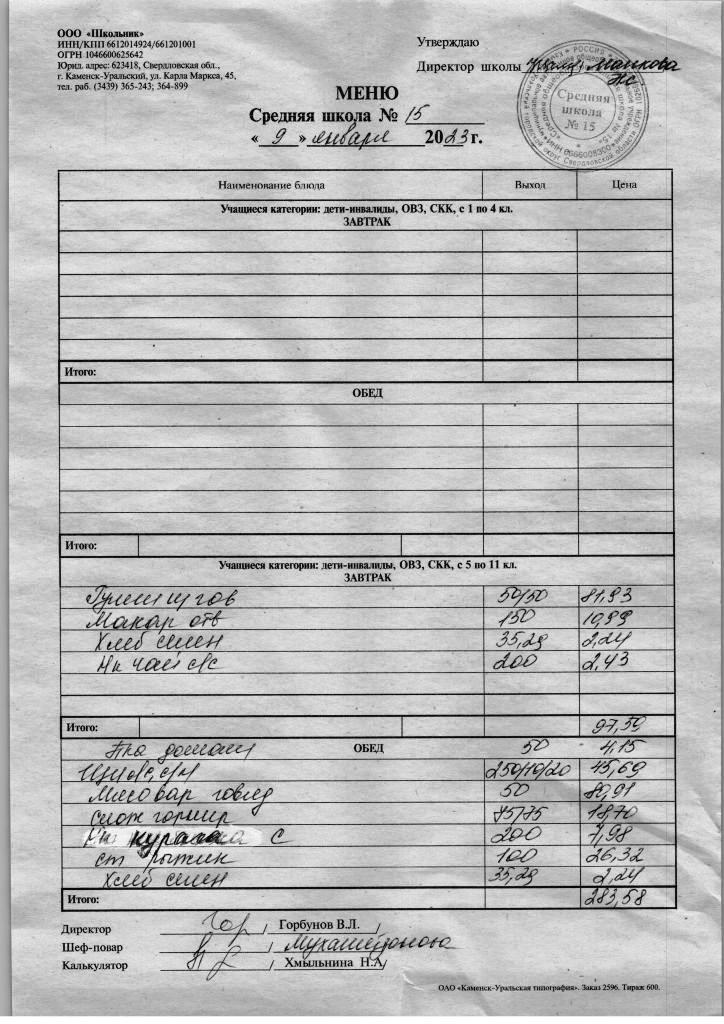 ООО «Школьник»
ИНН/КПП 6612014924/661201001
ОГРН 1046600625642
Юрид. адрес: 623418, Свердловская обл.,
г. Каменск-Уральский, ул. Карла Маркса, 45,
тел. раб. (3439) 365-243; 364-899
Утверждаю
Директор школы
Средняя школа № 15
МЕНЮ
Средняя школа № 15
« 9 » января 2023 г.
Наименование блюда Выход Цена
Учащиеся категории: дети-инвалиды, ОВЗ, СКК, с 1 по 4 кл.
ЗАВТРАК
Итого:
ОБЕД
Итого:
Учащиеся категории: дети-инвалиды, ОВЗ, СКК, с 5 по 11 кл.
ЗАВТРАК
Гуляш из гов 50/50 81,93
Макар отв 150 10,99
Хлеб пшен 35,29 2,24
Нк чай с/с 200 2,43
Итого: 97,59
ОБЕД 50 4,15
250/10/20 45,69
Мясо вар говяд 50 80,91
слож гарнир 75/75 18,70
курага С 200 7,98
рыжик 100 26,32
Хлеб пшен 35,29 2,24
Итого: 283,58
Директор / Горбунов В.Л. /
Шеф-повар /
Калькулятор / Хмыльнина Н.А/
ОАО «Каменск-Уральская типография». Заказ 2596. Тираж 600.